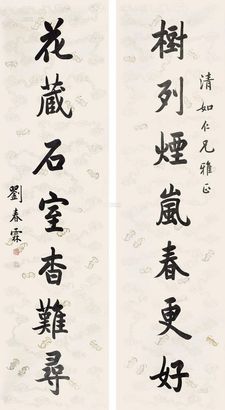 樹列煙嵐春更好
清如仁兄雅正
花蔵石室杳難尋
劉春霖